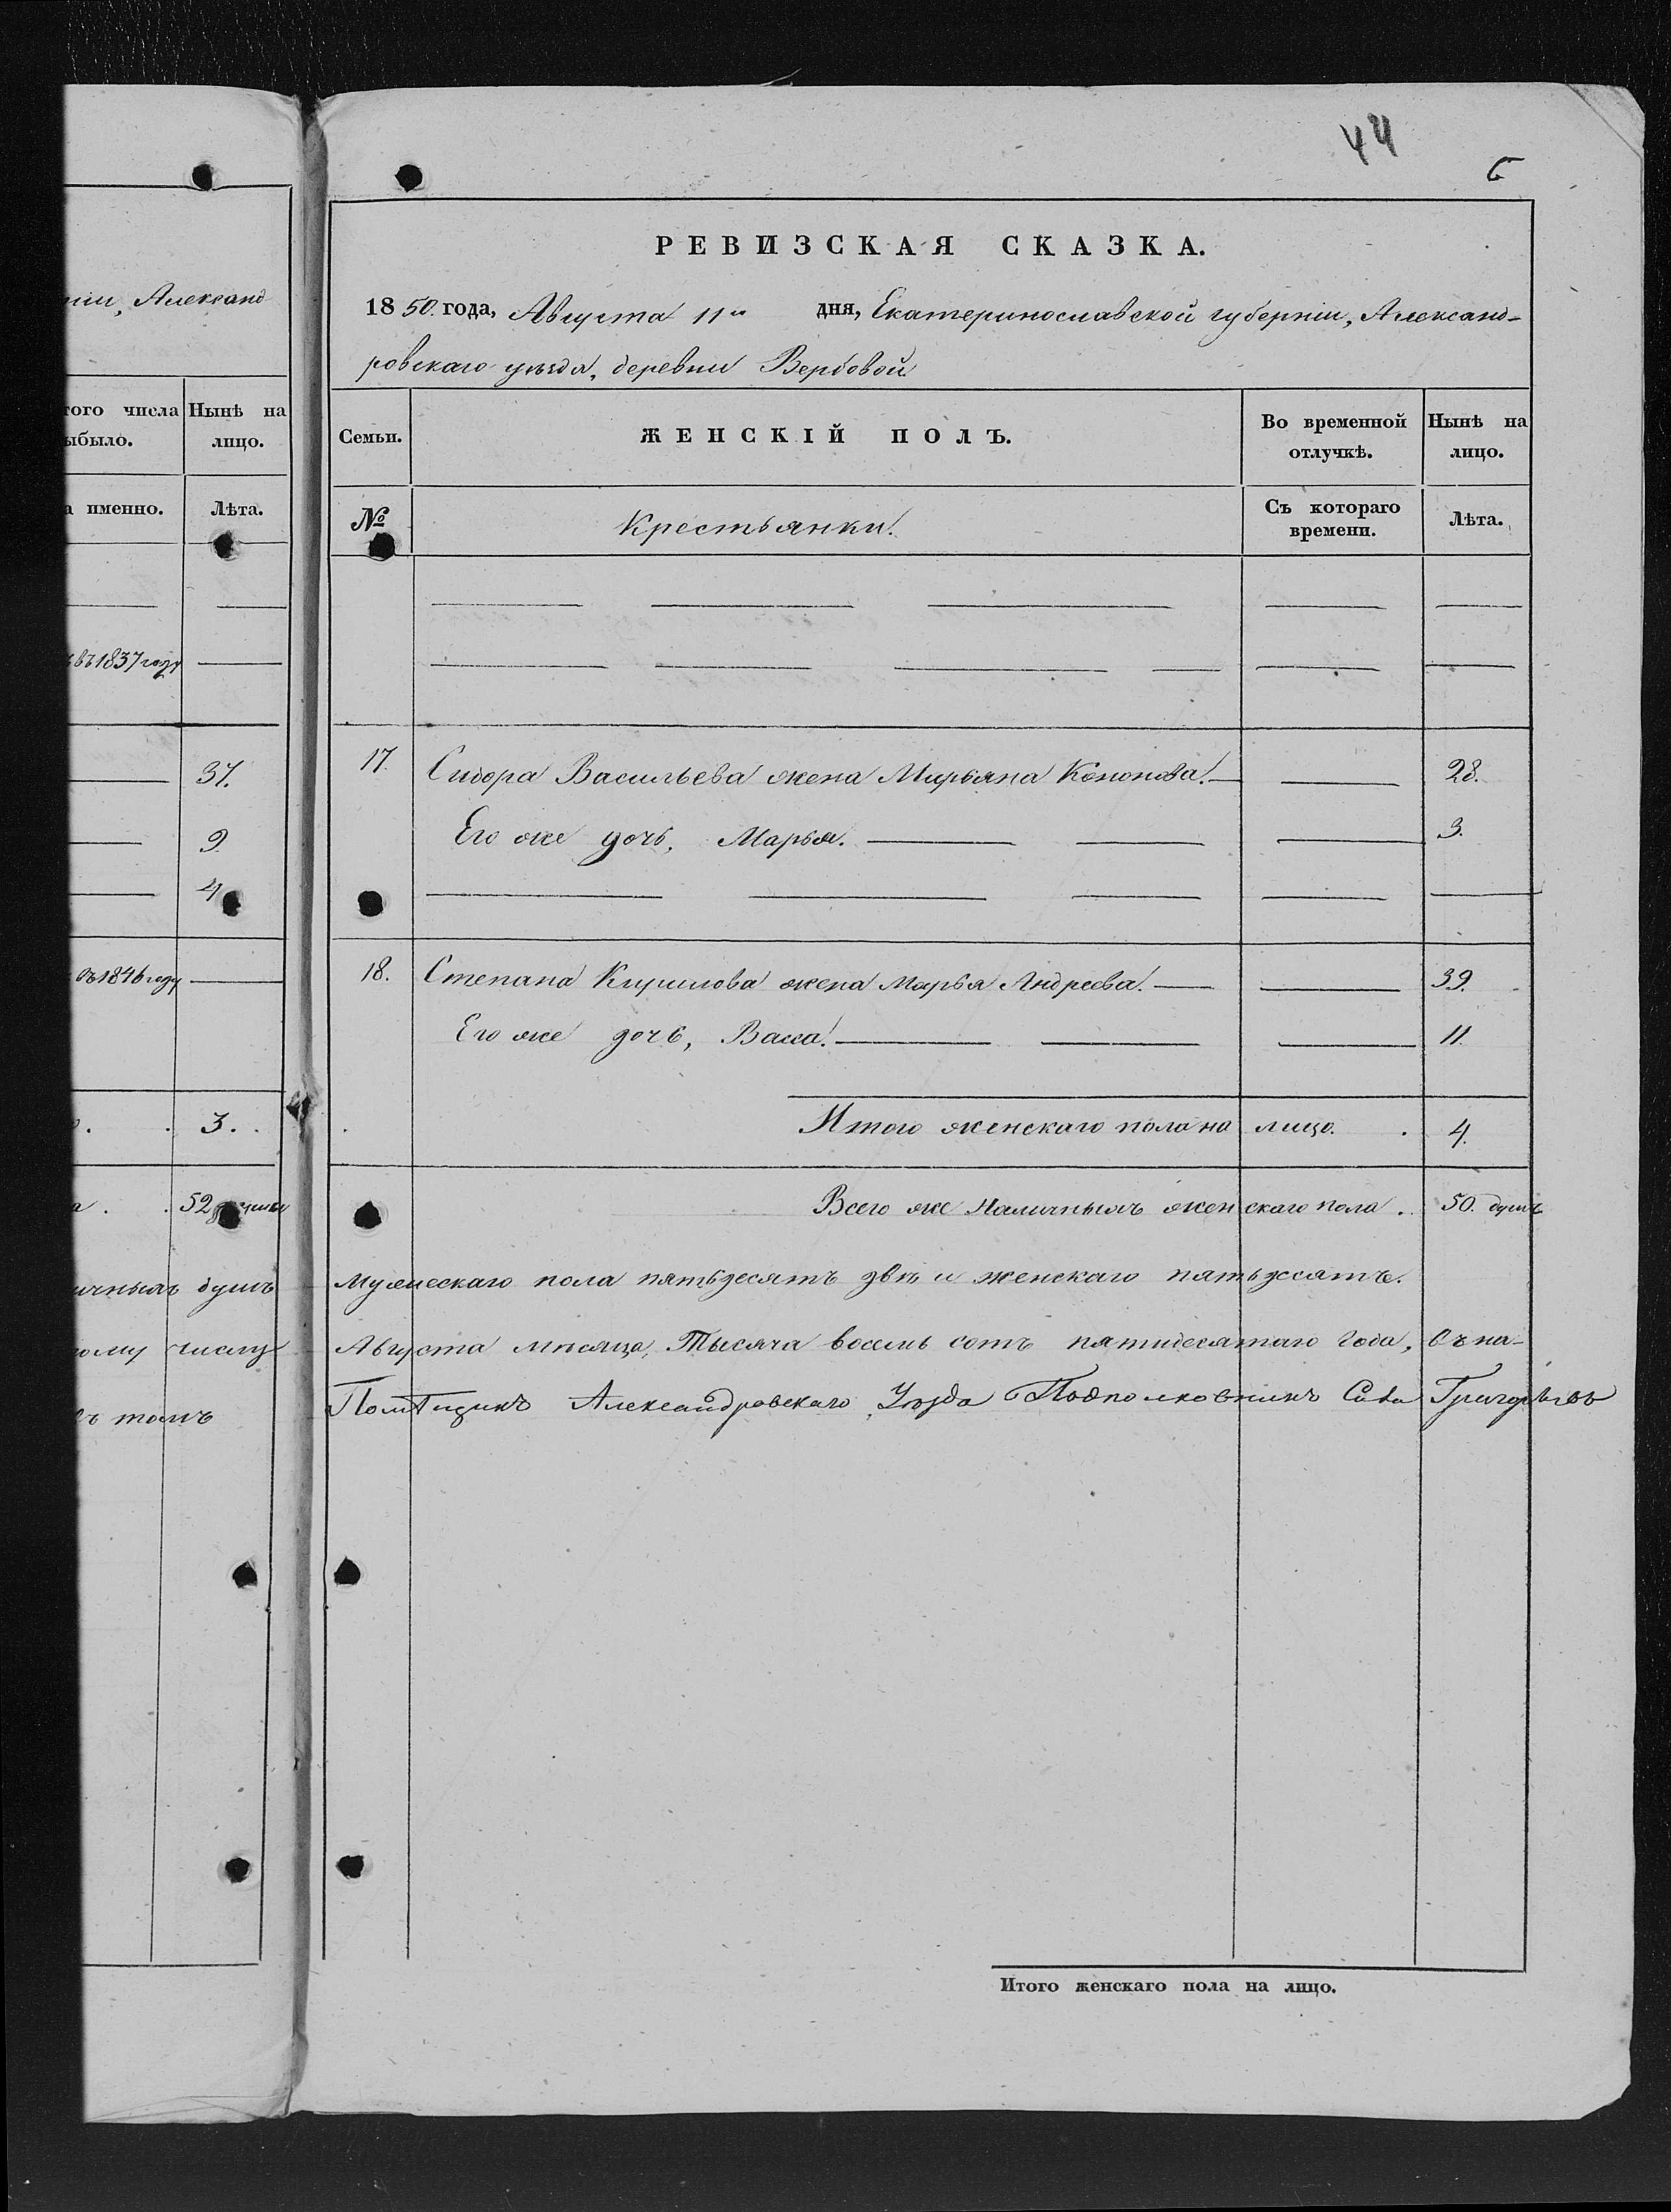 44
6
ніи, Александ
того числа
ыбыло.
Нынѣ на
лицо.
а именно.
Лѣта.
въ 1837 году
37.
9
4
въ 1846 году
3.
52 души
ичныхъ душъ
ному числу
въ томъ
РЕВИЗСКАЯ СКАЗКА.
1850 года, Августа 11го дня, Екатеринославской губерніи, Александ-
ровскаго уѣзда, деревни Вербовой
Семьи.
ЖЕНСКІЙ ПОЛЪ.
Во временной
отлучкѣ.
Нынѣ на
лицо.
№
Крестьянки.
Съ котораго
времени.
Лѣта.
17. Сидора Васильева жена Марьяна Кононова. 28.
Его же дочь, Марья. 3.
18. Степана Кирилова жена Марья Андреева. 39.
Его же дочь, Васса. 11.
Итого женскаго пола на лицо. 4.
Всего же наличныхъ женскаго пола. 50. душъ
Мужескаго пола пятьдесятъ двѣ и женскаго пятьдесятъ.
Августа мѣсяца, Тысяча восемь сотъ пятидесятаго года, въ на-
Александровскаго Уѣзда Подполковникъ Сава Григорьевъ
Итого женскаго пола на лицо.